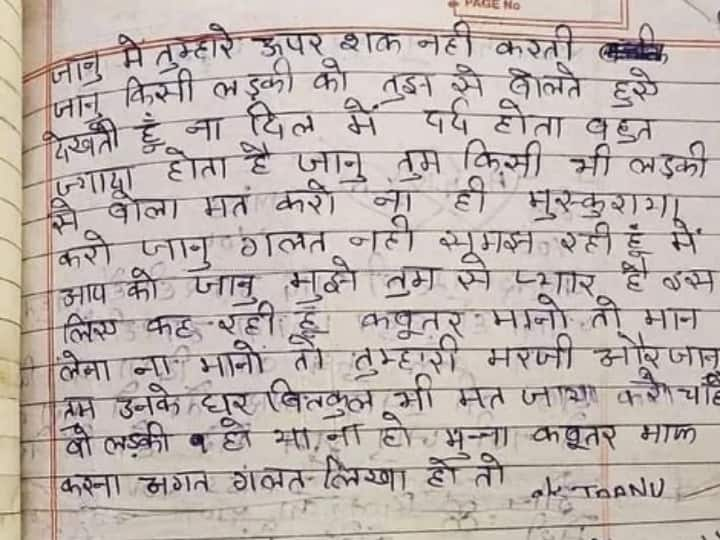 PAGE No
जानु मे तुम्हारे ऊपर शक नही करती
जानु किसी लड़की को तुझ से बोलते हुसे
देखती हूँ ना दिल में दर्द होता बहुत
ज्यादा होता है जानु तुम किसी भी लड़की
से बोला मत करो ना ही मुस्कुराया
करो जानु गलत नही समझ रही हूं में
आप को जानु मुझे तुम से प्यार है इस
लिए कह रही हूँ कबूतर मानो तो मान
लेना ना मानो तो तुम्हारी मरजी और जानु
तुम उनके घर बिलकुल भी मत जाया करो चाहे
वो लड़की हो या ना हो मुन्ना कबूतर माफ
करना अगत गलत लिखा हो तो
ok JAANU